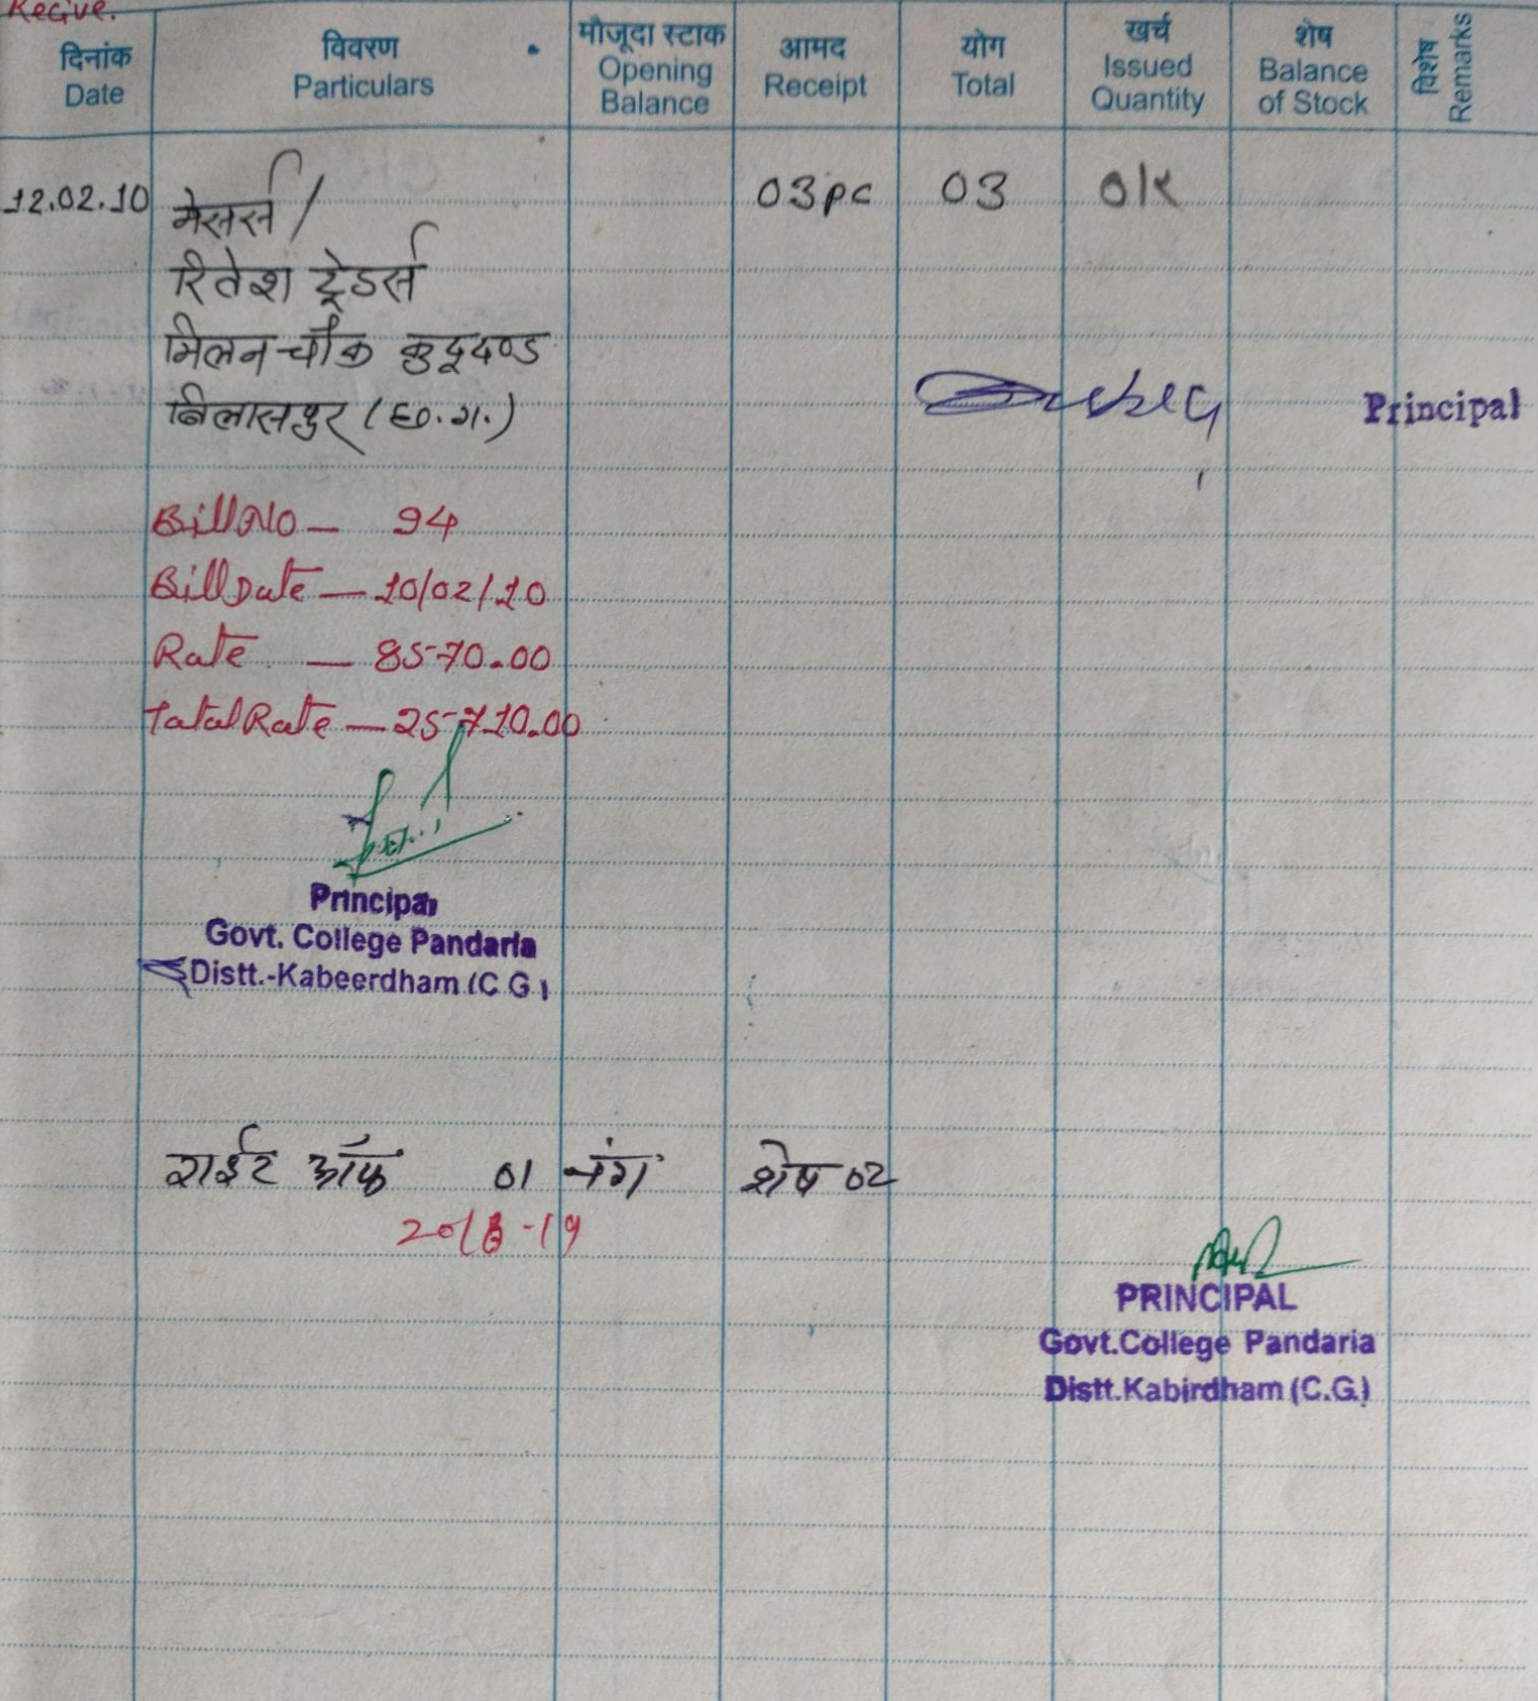 Recive.
दिनांक विवरण मौजूदा स्टाक आमद योग खर्च शेष विशेष
Date Particulars Opening Balance Receipt Total Issued Quantity Balance of Stock Remarks
12.02.10 मेसर्स / 03pc 03 O/K
रितेश ट्रेडर्स
मिलन चौक कुदूदण्ड
बिलासपुर (छ.ग.) Principal
Bill No — 94
Bill Date — 10/02/10
Rate — 8570.00
Tatal Rate — 25710.00
Principal
Govt. College Pandaria
Distt.-Kabeerdham (C.G.)
राईट ऑफ 01 नंग शेष 02
2018-19
PRINCIPAL
Govt.College Pandaria
Distt.Kabirdham (C.G.)